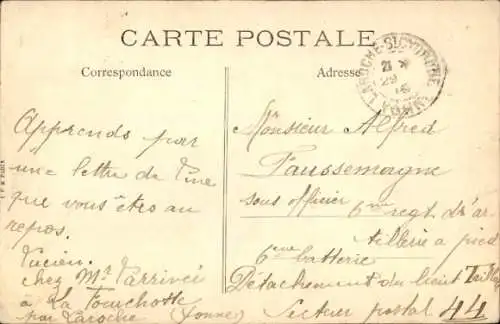 CARTE POSTALE
Correspondance
Adresse
LAROCHE-ST-CYDROINE
21
29
16
YONNE
Apprends par
une lettre de
que vous êtes au
repos.
Lucien.
chez Mr
à La Fourchotte
par Laroche (Yonne)
Monsieur Alfred
Faussemagne
sous officier
6me regt d'ar
tillerie a pied
6me batterie
Détachement du lieut
Secteur postal 44